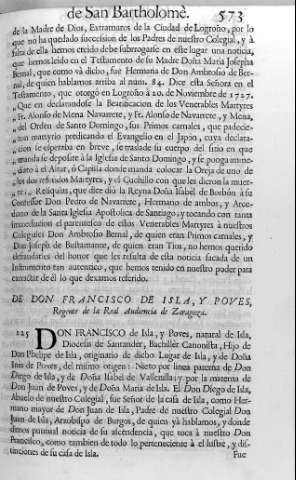 de San Bartholomè. 573
de la Madre de Dios, Extramuros de la Ciudad de Logroño, por lo
que no ha quedado succession de los Padres de nuestro Colegial, y à
falta de ella hemos creido debe subrrogarse en este lugar una noticia,
que hemos leido en el Testamento de su Madre Doña Maria Josepha
Bernal, que como và dicho, fue Hermana de Don Ambrosio de Ber-
nal, de quien hablamos arriba al num. 84. Dice esta Señora en el
Testamento, que otorgò en Logroño à 10. de Noviembre de 1727.
„ Que en declarandose la Beatificacion de los Venerables Martyres
„ Fr. Alonso de Mena Navarrete, y Fr. Alonso de Navarrete, y Mena,
„ del Orden de Santo Domingo, sus Primos carnales, que padecie-
„ ron martyrio predicando el Evangelio en el Japon, cuya declara-
„ cion se esperaba en breve, se traslade su cuerpo del sitio en que
„ manda se deposite à la Iglesia de Santo Domingo, y se ponga inme-
„ diato à el Altar, ò Capilla donde manda colocar la Oreja de uno de
„ los dos referidos Martyres, y el Cuchillo con que les dieron la muer-
„ te; Reliquias, que dice diò la Reyna Doña Isabel de Borbòn à su
Confessor Don Pedro de Navarrete, Hermano de ambos, y Arce-
diano de la Santa Iglesia Apostolica de Santiago, y tocando con tanta
immediacion el parentesco de ellos Venerables Martyres à nuestros
Colegiales Don Ambrosio Bernal, de quien eran Primos carnales, y
Don Joseph de Bustamante, de quien eran Tios, no hemos querido
defraudarles del honor que les resulta de esta noticia sacada de un
Instrumento tan autentico, que hemos tenido en nuestro poder para
extractar de èl lo que dexamos referido.
DE DON FRANCISCO DE ISLA, Y POVES,
Regente de la Real Audiencia de Zaragoza.
225 DON FRANCISCO de Isla, y Poves, natural de Isla,
Diocesis de Santandèr, Bachillèr Canonista, Hijo de
Don Phelipe de Isla, originario de dicho Lugar de Isla, y de Doña
Ines de Poves, del mismo origen: Nieto por linea paterna de Don
Diego de Isla, y de Doña Isabèl de Vallenilla; y por la materna de
Don Juan de Poves, y de Doña Maria de Isla. El Don Diego de Isla,
Abuelo de nuestro Colegial, fue Señor de la casa de Isla, como Her-
mano mayor de Don Juan de Isla, Padre de nuestro Colegial Don
Juan de Isla, Arzobispo de Burgos, de quien yà hablamos, y donde
dimos puntual noticia de su ascendencia, que toca à nuestro Don
Francisco, como tambien de todo lo perteneciente à el lustre, y dis-
tinciones de su casa de Isla.
Fue